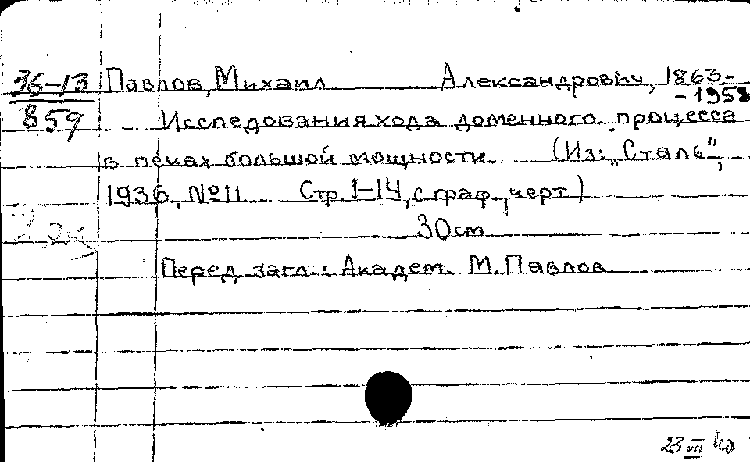 36-13 Павлов, Михаил Александрович, 1863-
-1958
859 Исследования хода доменного процесса
в печах большой мощности. (Из: "Сталь",
1936, №11 Стр. 1-14, с граф., черт.)
30 см
2 экз
Перед загл.: Академ. М. Павлов
23 VII